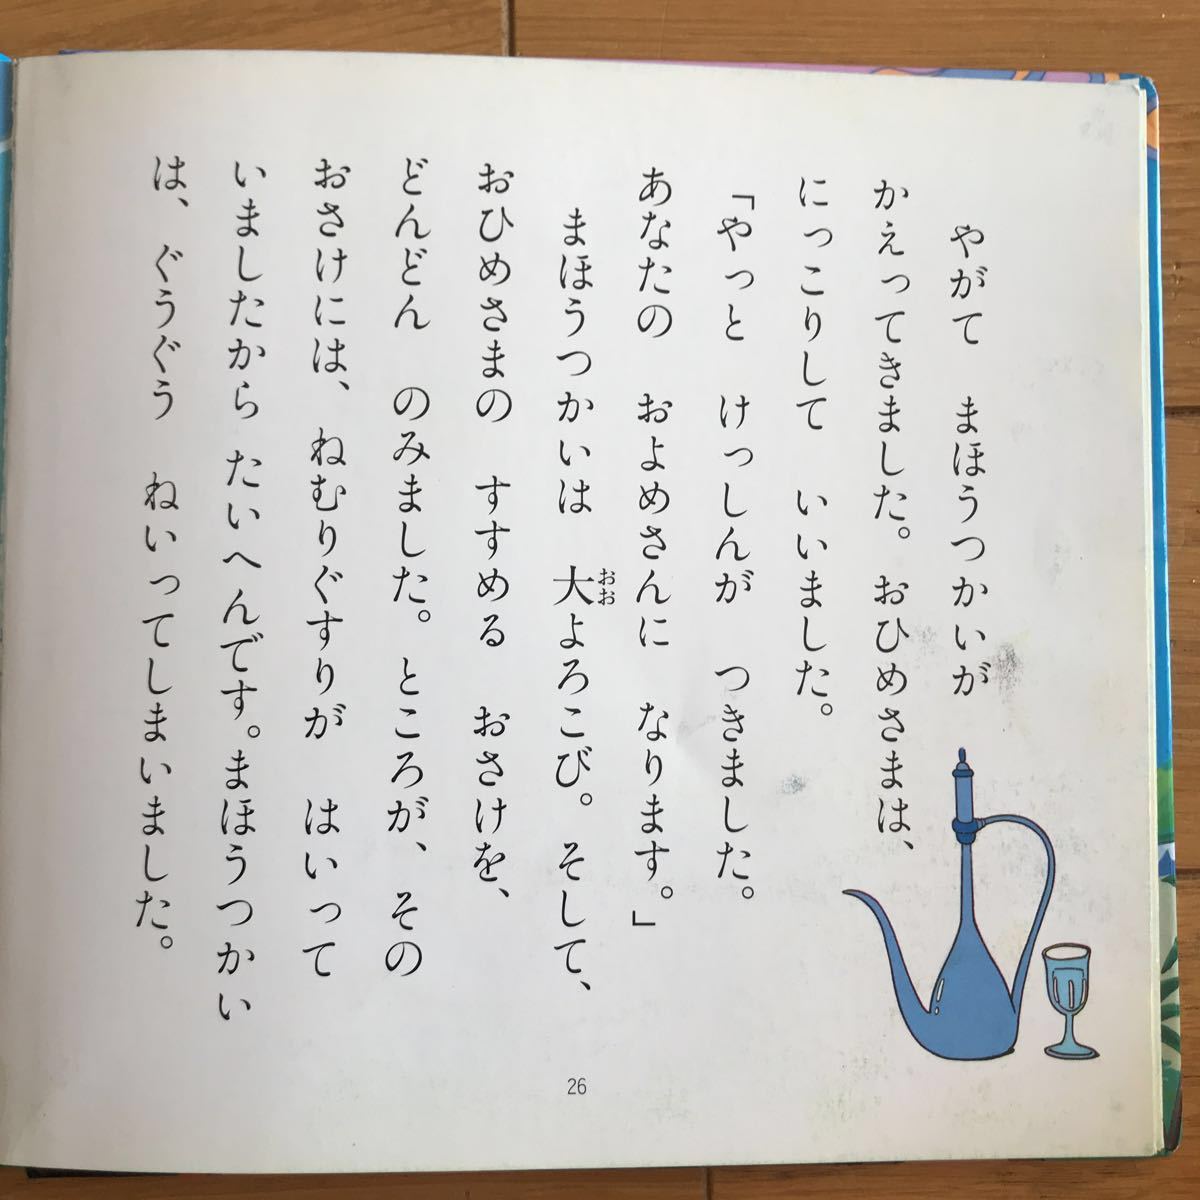 やがて　まほうつかいが
かえってきました。おひめさまは、
にっこりして　いいました。
「やっと　けっしんが　つきました。
あなたの　およめさんに　なります。」
まほうつかいは　大よろこび。そして、
おお
おひめさまの　すすめる　おさけを、
どんどん　のみました。ところが、その
おさけには、ねむりぐすりが　はいって
いましたから　たいへんです。まほうつかい
は、ぐうぐう　ねいってしまいました。
26